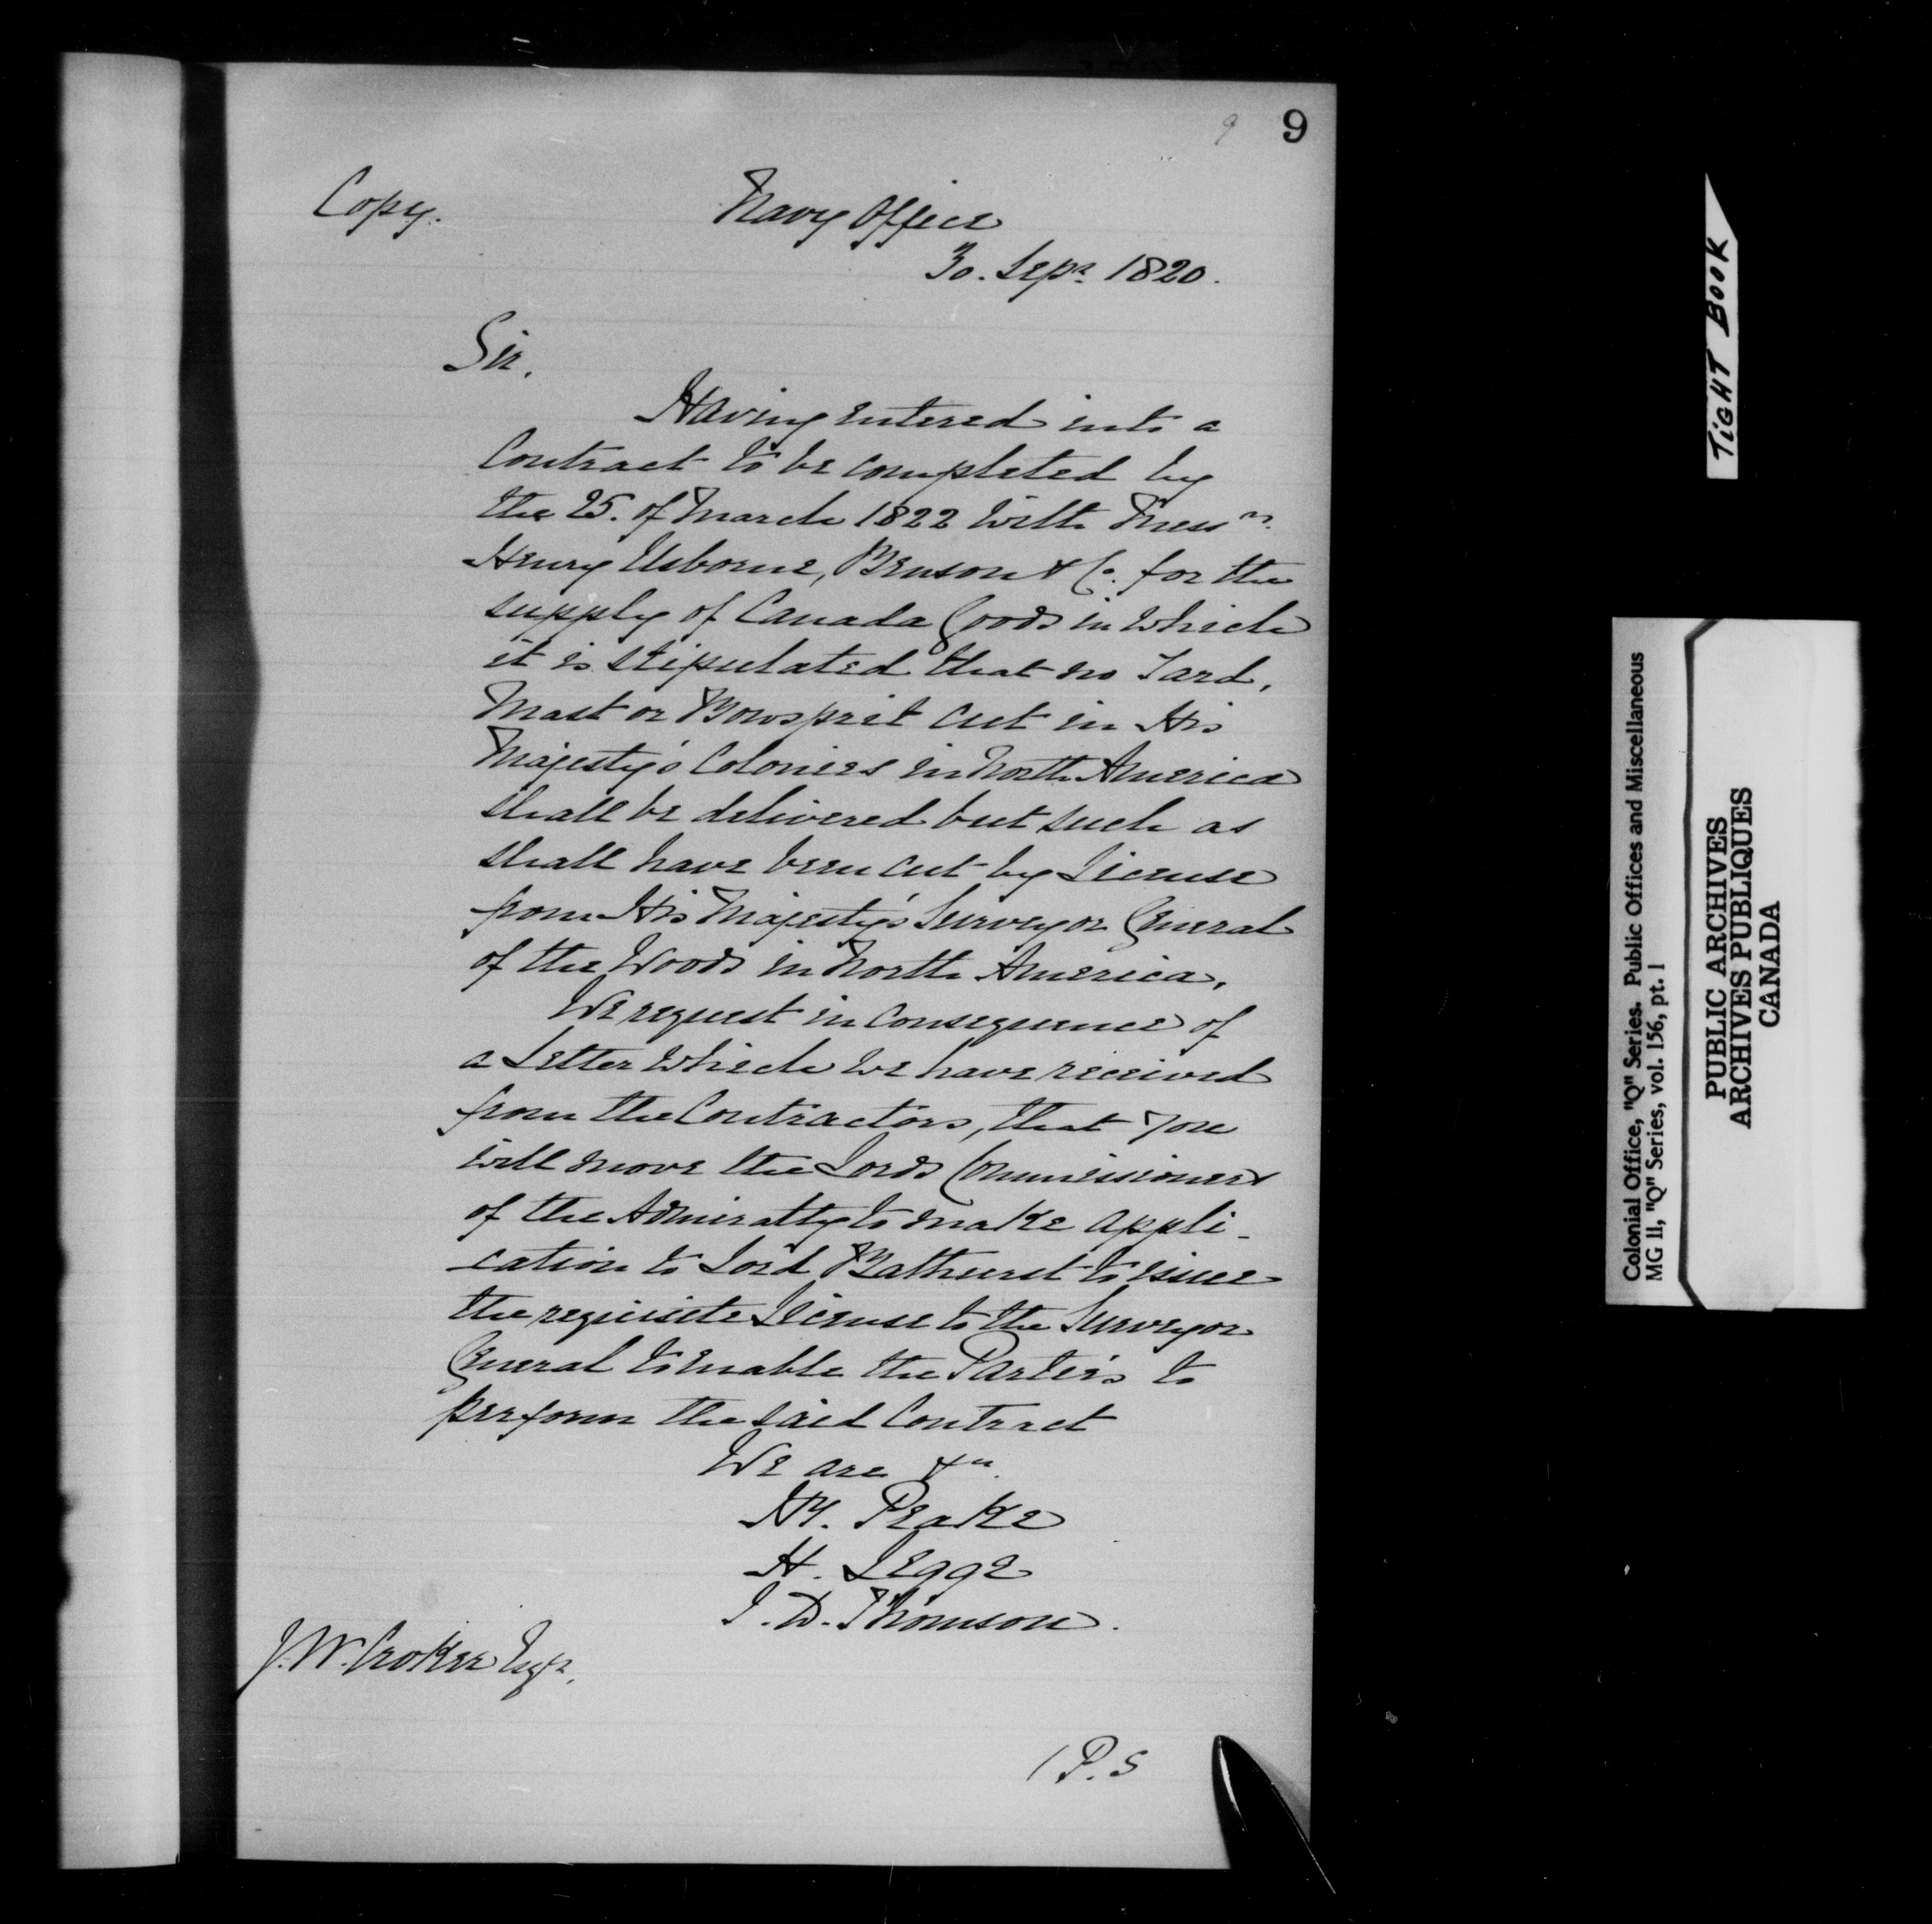 9 9
Copy. Navy Office
30. Sepr. 1820.
Sir,
Having entered into a
Contract to be completed by
the 25. of March 1822 with Messrs.
Henry Usborne, Benson & Co. for the
supply of Canada Goods in which
it is stipulated that no Yard,
Mast or Bowsprit cut in His
Majesty's Colonies in North America
shall be delivered but such as
shall have been cut by License
from His Majesty's Surveyor General
of the Woods in North America,
We request in consequence of
a Letter which we have received
from the Contractors, that you
will move the Lords Commissioners
of the Admiralty to make appli-
cation to Lord Bathurst to issue
the requisite License to the Surveyor
General to enable the Parties to
perform the said Contract
We are &c.
HY. Peake
H. Legge
J. D. Thomson.
J. W. Croker Esqr.
/ P. S
TIGHT BOOK
Colonial Office, "Q" Series. Public Offices and Miscellaneous
MG 11, "Q" Series, vol. 156, pt. 1
PUBLIC ARCHIVES
ARCHIVES PUBLIQUES
CANADA